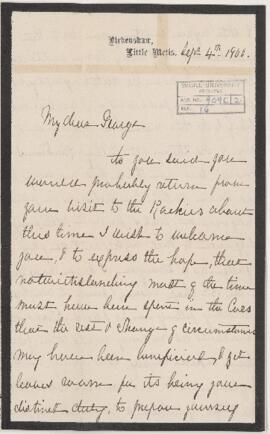 Birkenshaw,
Little Metis. Sept 4th 1900.
McGILL UNIVERSITY
ARCHIVES
ACC. NO.
REF. 16
My dear George
As you said you
would probably return from
your visit to the Rockies about
this time I wish to welcome
you, & to express the hope, that
notwithstanding most of the time
must have been spent in the Cars
that the rest & change of circumstances
may have been beneficial, & yet
leaves room for its being your
distinct duty, to prepare yourself